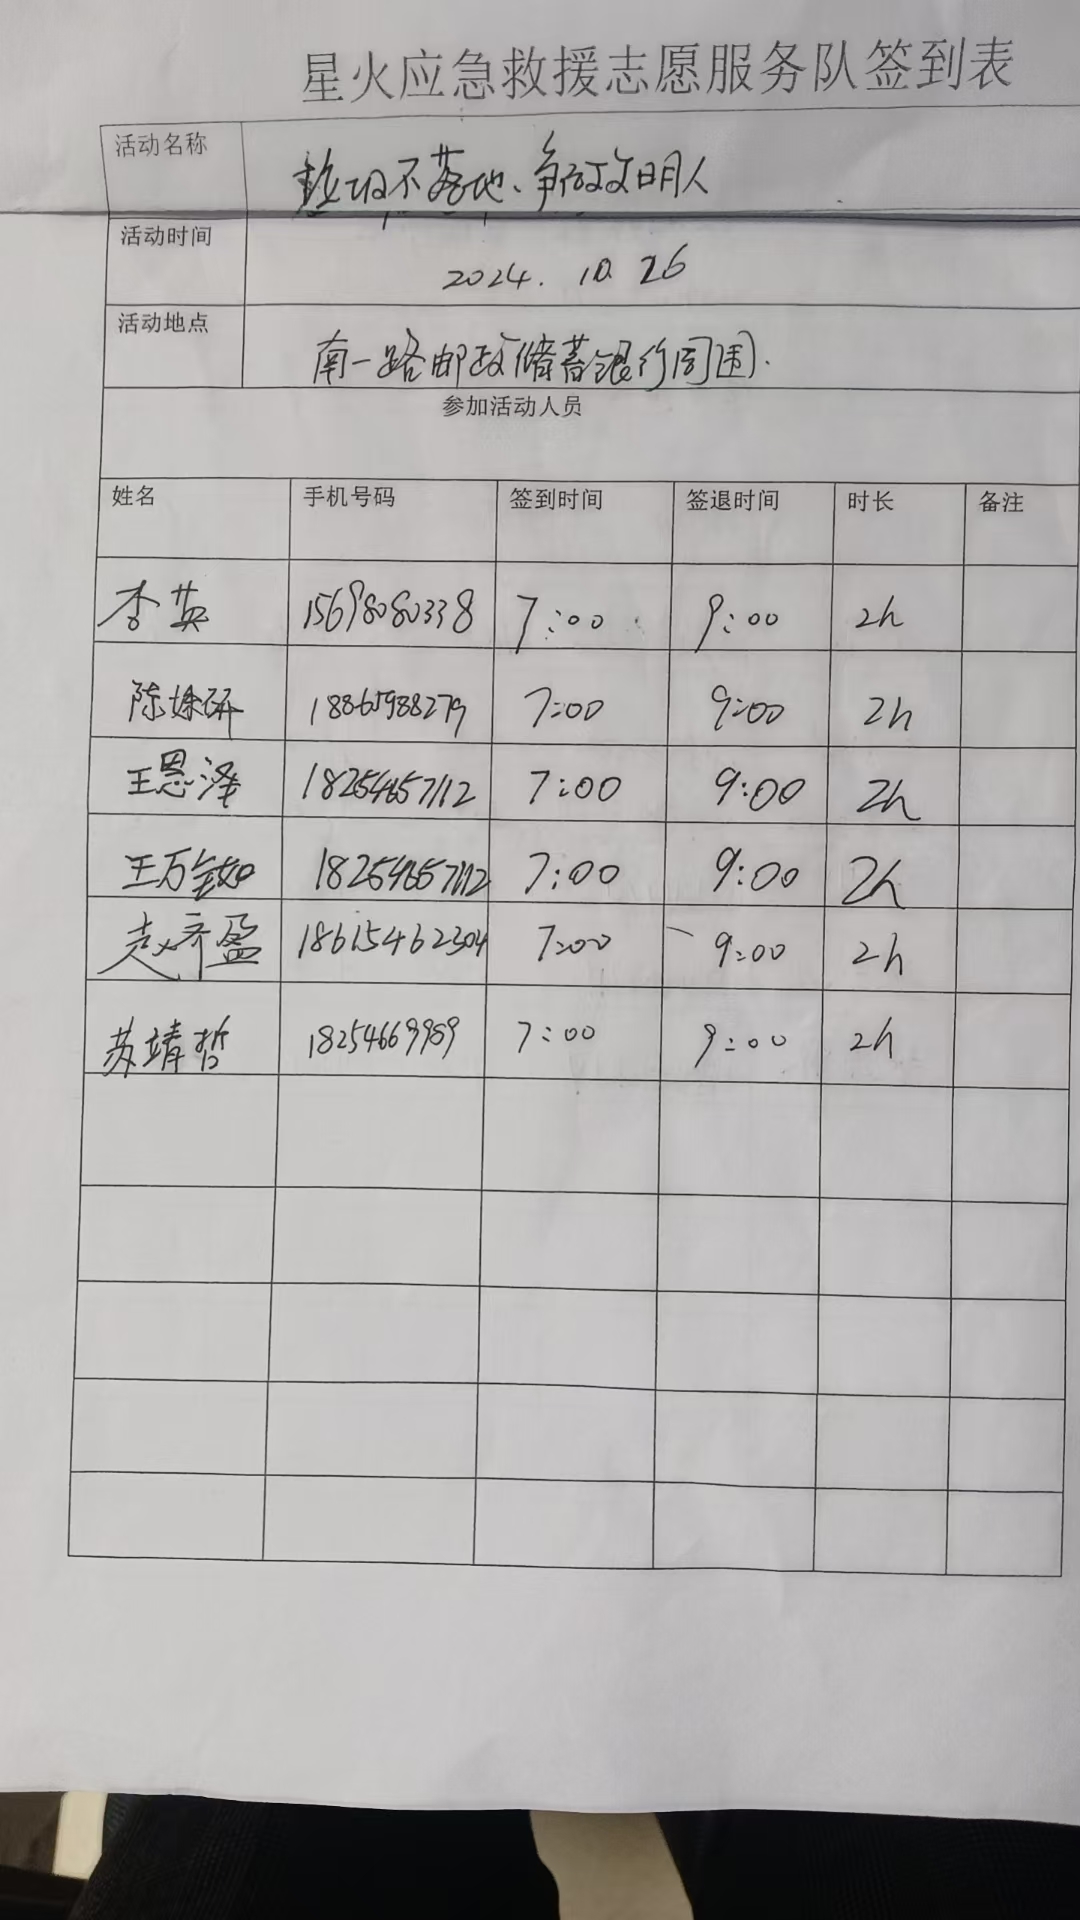 星火应急救援志愿服务队签到表
活动名称 垃圾不落地、争做文明人
活动时间 2024.10.26
活动地点 南一路邮政储蓄银行周围.
参加活动人员
姓名 手机号码 签到时间 签退时间 时长 备注
李英 15698080338 7:00 9:00 2h
陈姝研 18865988279 7:00 9:00 2h
王恩泽 18254657112 7:00 9:00 2h
王万 18254657112 7:00 9:00 2h
赵齐盈 18615462304 7:00 9:00 2h
苏靖哲 18254669989 7:00 9:00 2h